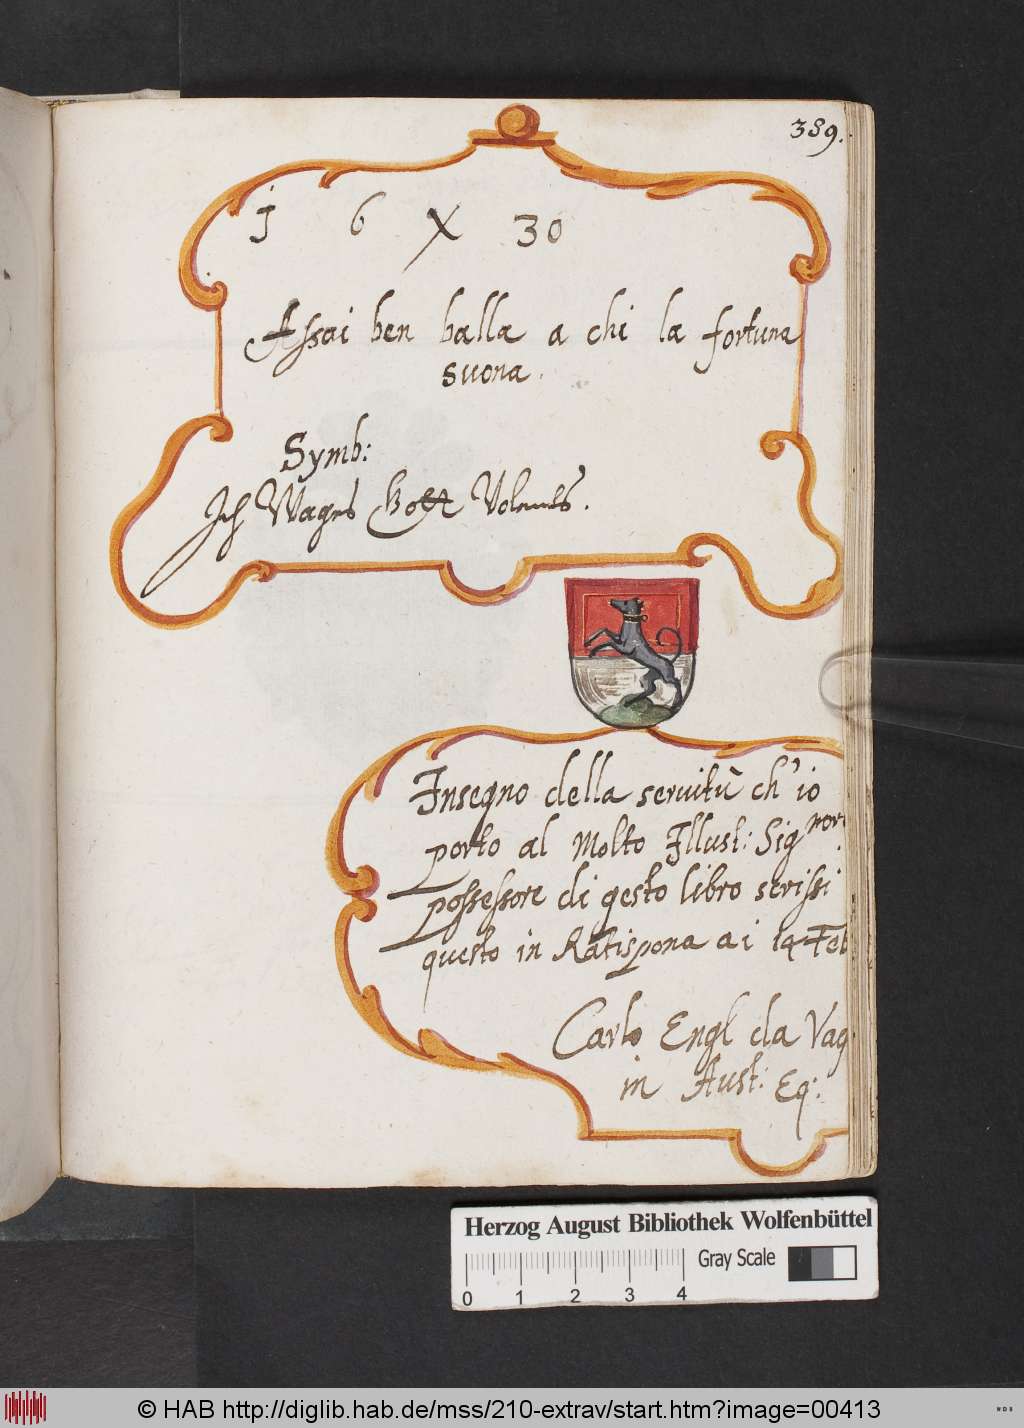 389.
j 6 X 30
Assai ben balla a chi la fortuna
suona.
Symb:
Ich Wags Gott
Insegno della seruitù ch'io
porto al Molto Illust: Sig
possessore di qesto libro scrissi
questo in Ratispona ai 14 Feb
Carlo Engl da Vag
in Aust: Eq:
Herzog August Bibliothek Wolfenbüttel
Gray Scale
0 1 2 3 4
© HAB http://diglib.hab.de/mss/210-extrav/start.htm?image=00413